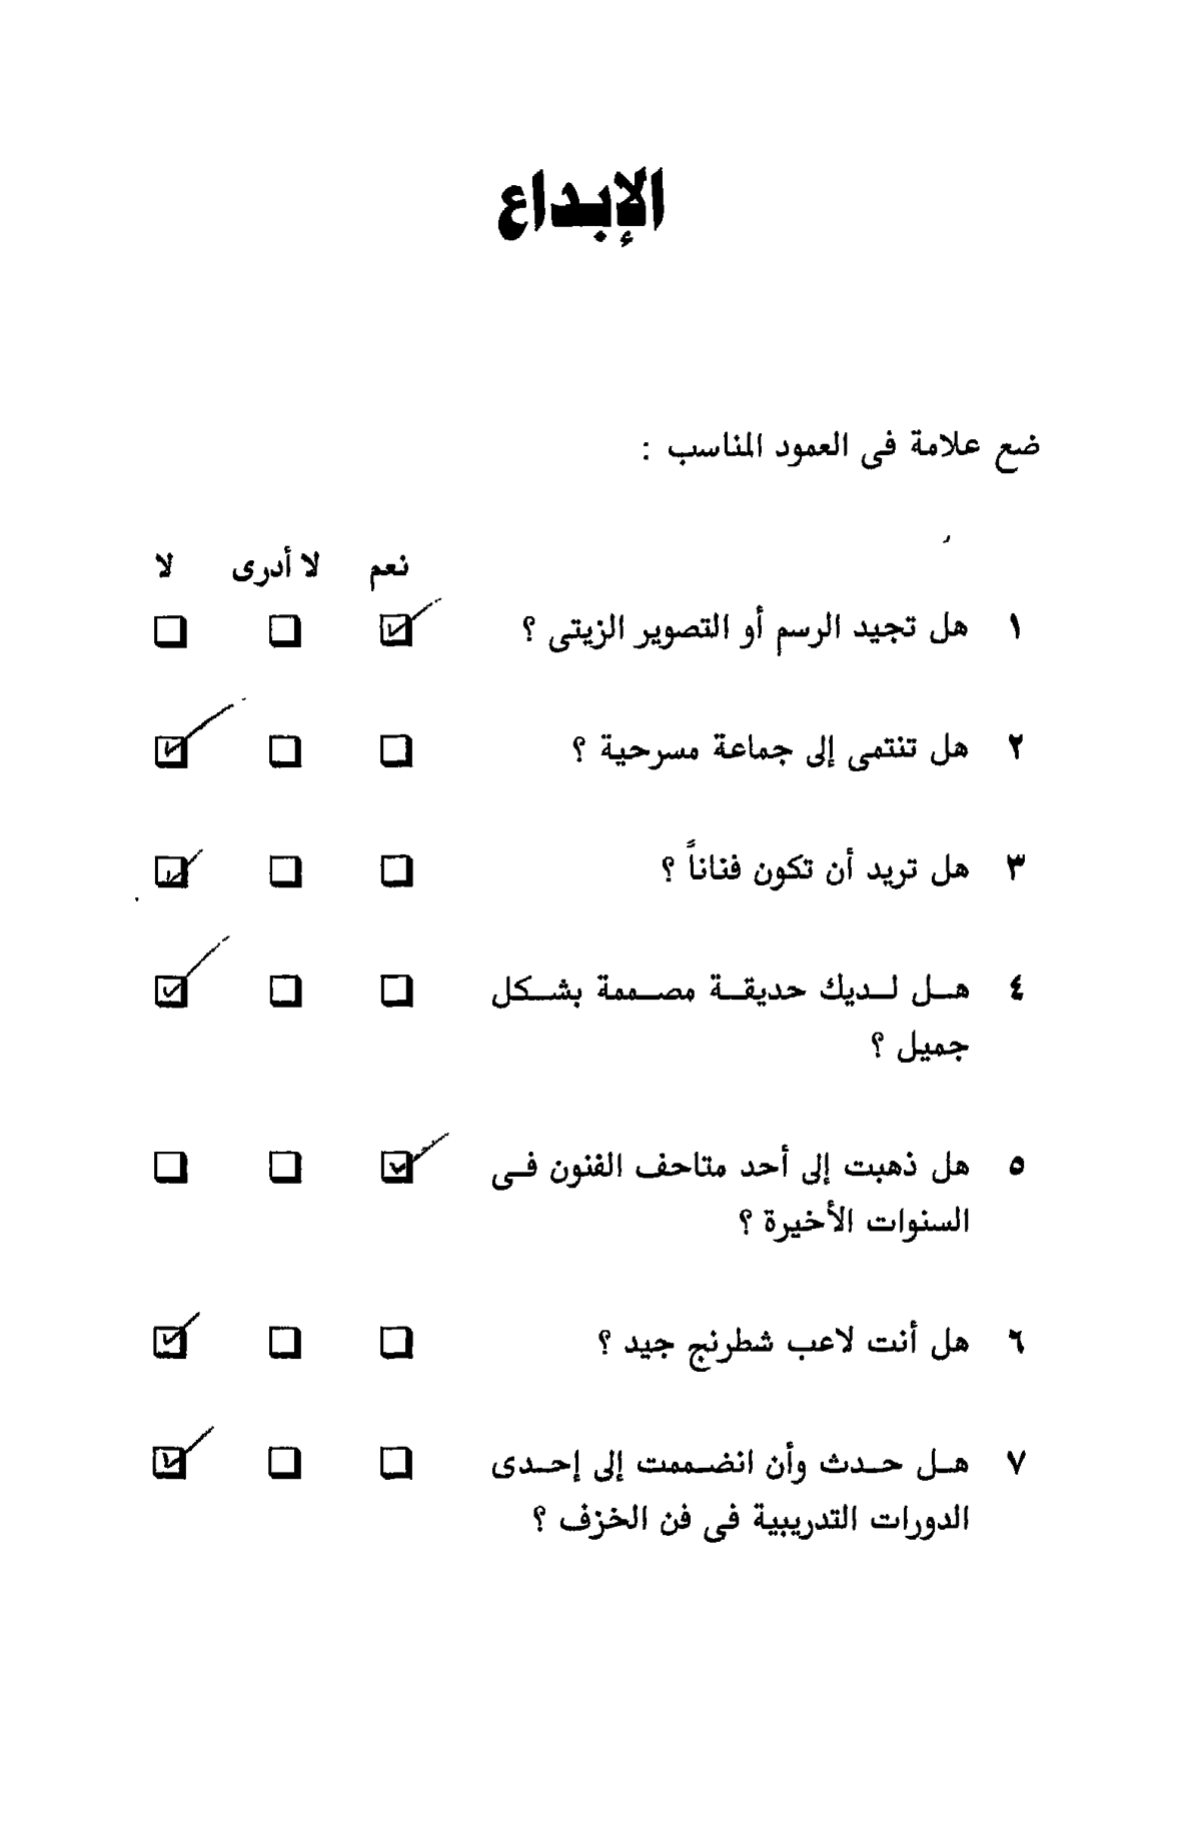 الإبداع
ضع علامة فى العمود المناسب :
نعم لا أدرى لا
١ هل تجيد الرسم أو التصوير الزيتى ؟ ☑ ☐ ☐
٢ هل تنتمى إلى جماعة مسرحية ؟ ☐ ☐ ☑
٣ هل تريد أن تكون فناناً ؟ ☐ ☐ ☑
٤ هل لديك حديقة مصممة بشكل ☐ ☐ ☑
جميل ؟
٥ هل ذهبت إلى أحد متاحف الفنون فى ☑ ☐ ☐
السنوات الأخيرة ؟
٦ هل أنت لاعب شطرنج جيد ؟ ☐ ☐ ☑
٧ هل حدث وأن انضممت إلى إحدى ☐ ☐ ☑
الدورات التدريبية فى فن الخزف ؟